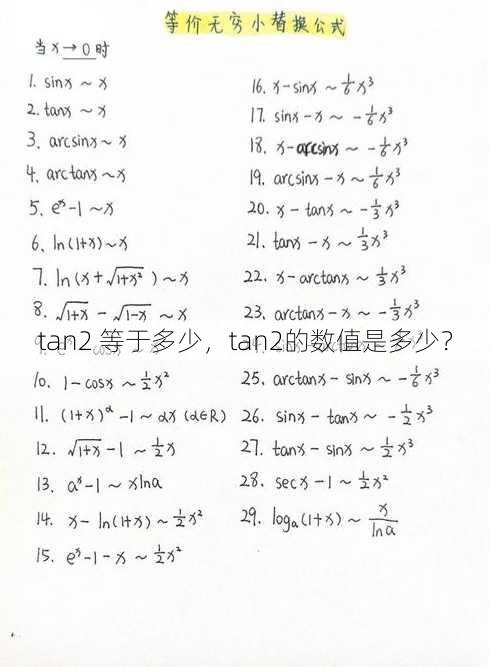 等价无穷小替换公式
当x→0时
1. sinx ~ x
2. tanx ~ x
3. arcsinx ~ x
4. arctanx ~ x
5. eˣ-1 ~ x
6. ln(1+x) ~ x
7. ln(x+√1+x²) ~ x
8. √1+x - √1-x ~ x
10. 1-cosx ~ 1/2x²
11. (1+x)ᵅ-1 ~ αx (α∈R)
12. √1+x - 1 ~ 1/2x
13. aˣ-1 ~ xlna
14. x-ln(1+x) ~ 1/2x²
15. eˣ-1-x ~ 1/2x²
16. x-sinx ~ 1/6x³
17. sinx-x ~ -1/6x³
18. x-arcsinx ~ -1/6x³
19. arcsinx-x ~ 1/6x³
20. x-tanx ~ -1/3x³
21. tanx-x ~ 1/3x³
22. x-arctanx ~ 1/3x³
23. arctanx-x ~ -1/3x³
25. arctanx-sinx ~ -1/6x³
26. sinx-tanx ~ -1/2x³
27. tanx-sinx ~ 1/2x³
28. secx-1 ~ 1/2x²
29. logₐ(1+x) ~ x/lna
tan2 等于多少，tan2的数值是多少？